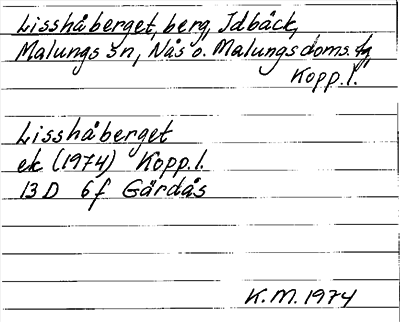 Lisshåberget, berg, Idbäck,
Malungs sn, Nås o. Malungs doms. fg,
Kopp.l.
Lisshåberget
ek (1974) Kopp.l.
13D 6f Gärdås
K.M. 1974